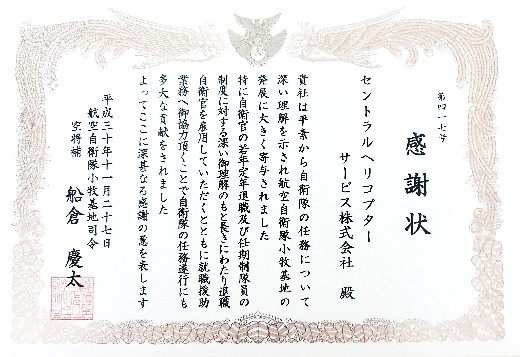 第四一七号
感謝状
セントラルヘリコプター
サービス株式会社 殿
貴社は平素から自衛隊の任務について
深い理解を示され航空自衛隊小牧基地の
発展に大きく寄与されました
特に自衛官の若年定年退職及び任期制隊員の
制度に対する深い御理解のもと長きにわたり退職
自衛官を雇用していただくとともに就職援助
業務へ御協力頂くことで自衛隊の任務遂行にも
多大な貢献をされました
よってここに深甚なる感謝の意を表します
平成三十年十一月二十七日
航空自衛隊小牧基地司令
空将補 船倉慶太